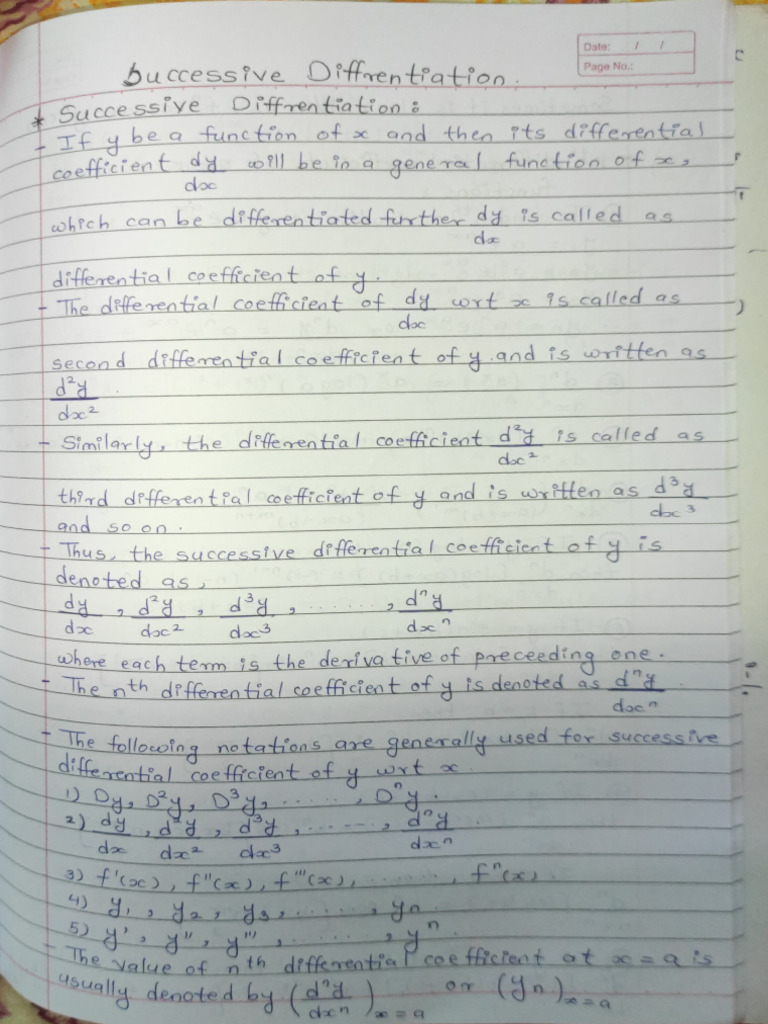 Date: / /
Page No.:
Successive Diffrentiation.
* Successive Diffrentiation :
- If y be a function of x and then its differential
coefficient dy/dx will be in a general function of x,
which can be differentiated further dy/dx is called as
differential coefficient of y.
- The differential coefficient of dy/dx wrt x is called as
second differential coefficient of y and is written as
d²y/dx².
- Similarly, the differential coefficient d²y/dx² is called as
third differential coefficient of y and is written as d³y/dx³
and so on.
- Thus, the successive differential coefficient of y is
denoted as,
dy/dx, d²y/dx², d³y/dx³, ......., dⁿy/dxⁿ
where each term is the derivative of preceeding one.
- The nth differential coefficient of y is denoted as dⁿy/dxⁿ
- The following notations are generally used for successive
differential coefficient of y wrt x.
1) Dy, D²y, D³y, ......, Dⁿy.
2) dy/dx, d²y/dx², d³y/dx³, ......, dⁿy/dxⁿ
3) f'(x), f''(x), f'''(x), ......., fⁿ(x)
4) y₁, y₂, y₃, ......, yn
5) y', y'', y''', ......., yⁿ
- The value of nth differential coefficient at x = a is
usually denoted by (dⁿy/dxⁿ)x=a or (yn)x=a